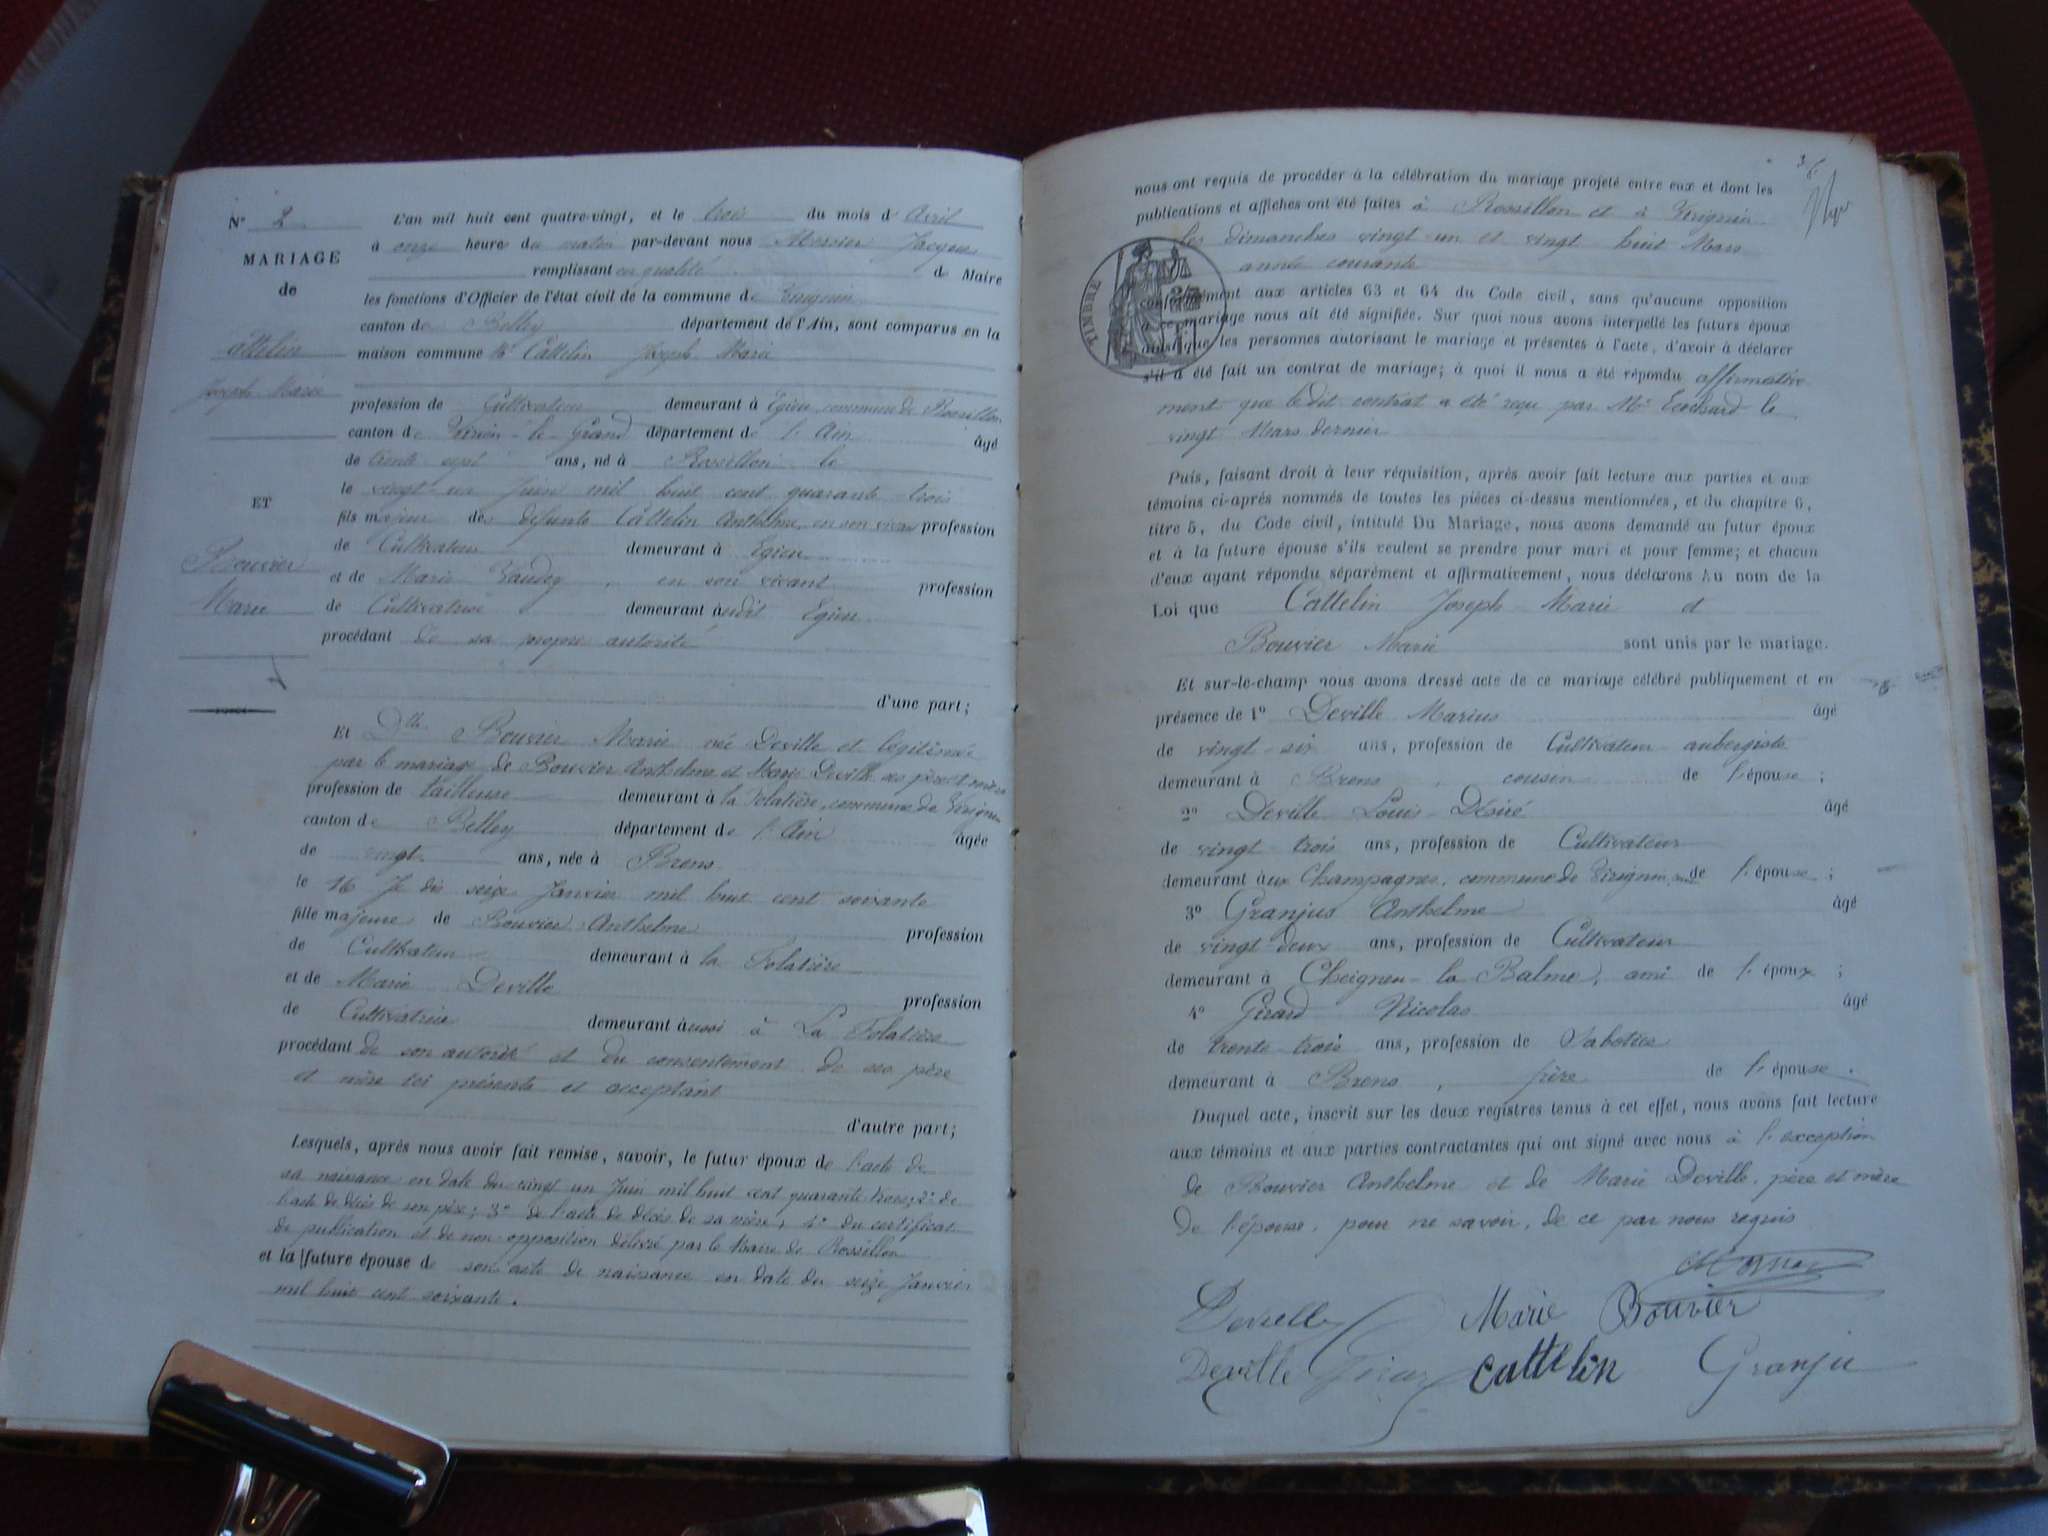 N° 2
MARIAGE
de
attelin
Joseph Marie
ET
Bouvier
Marie
L'an mil huit cent quatre-vingt, et le trois du mois d Avril
à onze heure du matin par-devant nous Jacques
remplissant en qualité de Maire
les fonctions d'Officier de l'état civil de la commune de
canton de Belley département de l'Ain, sont comparus en la
maison commune Mr Cattelin Joseph Marie
profession de Cultivateur demeurant à Egieu, commune de Rossillon
canton de Virieu-le-Grand département de l'Ain âgé
de trente sept ans, né à Rossillon le
le vingt-un Juin mil huit cent quarante trois
fils majeur des défunts Cattelin Anthelme, en son vivant profession
de Cultivateur demeurant à Egieu
et de Marie en son vivant profession
de Cultivateur demeurant àudit Egieu
procédant de sa propre autorité
d'une part;
Et Dlle Bouvier Marie née Deville et légitimée
par le mariage de Bouvier Anthelme et Marie Deville ses père et mère
profession de tailleuse demeurant à la Folatière, commune de Virignin
canton de Belley département de l'Ain âgée
de vingt ans, née à Brens
le 16 Je dis seize Janvier mil huit cent soixante
fille majeure de Bouvier Anthelme profession
de Cultivateur demeurant à la Folatière
et de Marie Deville profession
de Cultivatrice demeurant àussi à La Folatière
procédant de son autorité et du consentement de ses père
et mère ici présents et acceptant
d'autre part;
Lesquels, après nous avoir fait remise, savoir, le futur époux de l'acte de
sa naissance en date du vingt un Juin mil huit cent quarante trois; 2° de
l'acte de décès de son père; 3° de l'acte de décès de sa mère, 4° du certificat
de publication et de non-opposition délivré par le Maire de Rossillon
et la future épouse de son acte de naissance en date du seize Janvier
mil huit cent soixante.
nous ont requis de procéder à la célébration du mariage projeté entre eux et dont les
publications et affiches ont été faites à Rossillon et à Virignin
les dimanches vingt un et vingt huit Mars
année courante
TIMBRE
conformément aux articles 63 et 64 du Code civil, sans qu'aucune opposition
à ce mariage nous ait été signifiée. Sur quoi nous avons interpellé les futurs époux
ainsi que les personnes autorisant le mariage et présentes à l'acte, d'avoir à déclarer
s'il a été fait un contrat de mariage; à quoi il nous a été répondu affirmative
ment que le dit contrat a été reçu par Me Ecochard le
vingt Mars dernier
Puis, faisant droit à leur réquisition, après avoir fait lecture aux parties et aux
témoins ci-après nommés de toutes les pièces ci-dessus mentionnées, et du chapitre 6,
titre 5, du Code civil, intitulé Du Mariage, nous avons demandé au futur époux
et à la future épouse s'ils veulent se prendre pour mari et pour femme; et chacun
d'eux ayant répondu séparément et affirmativement, nous déclarons Au nom de la
Loi que Cattelin Joseph-Marie et
Bouvier Marie sont unis par le mariage.
Et sur-le-champ nous avons dressé acte de ce mariage célébré publiquement et en
présence de 1° Deville Marius âgé
de vingt-six ans, profession de Cultivateur aubergiste
demeurant à Brens, cousin de l'épouse;
2° Deville Louis-Désiré âgé
de vingt trois ans, profession de Cultivateur
demeurant àux Champagnes, commune de Virignin de l'épouse;
3° Granjus Anthelme âgé
de vingt deux ans, profession de Cultivateur
demeurant à Cheignieu-la Balme, ami de l'époux;
4° Girard Nicolas âgé
de trente-trois ans, profession de Sabotier
demeurant à Brens, frère de l'épouse.
Duquel acte, inscrit sur les deux registres tenus à cet effet, nous avons fait lecture
aux témoins et aux parties contractantes qui ont signé avec nous à l'exception
de Bouvier Anthelme et de Marie Deville, père et mère
de l'épouse, pour ne savoir, de ce par nous requis
Deville Marie Bouvier
Deville Cattelin Granju